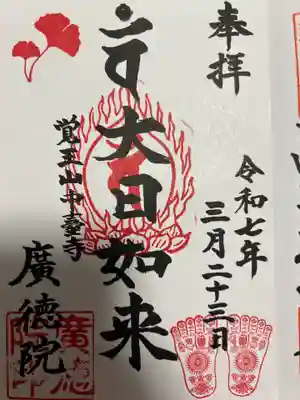 奉拝
令和七年
三月二十三日
大日如来
覚王山中臺寺
廣徳院